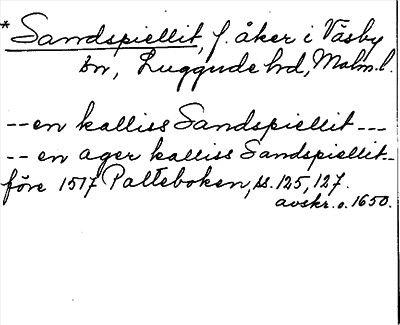 * Sandspiellit, f. åker i Väsby
sn, Luggude hd, Malm.l.
--en kalliss Sandspiellit---
--en ager kalliss Sandspiellit--
före 1517 Palteboken, ss. 125, 127.
avskr. o. 1650.